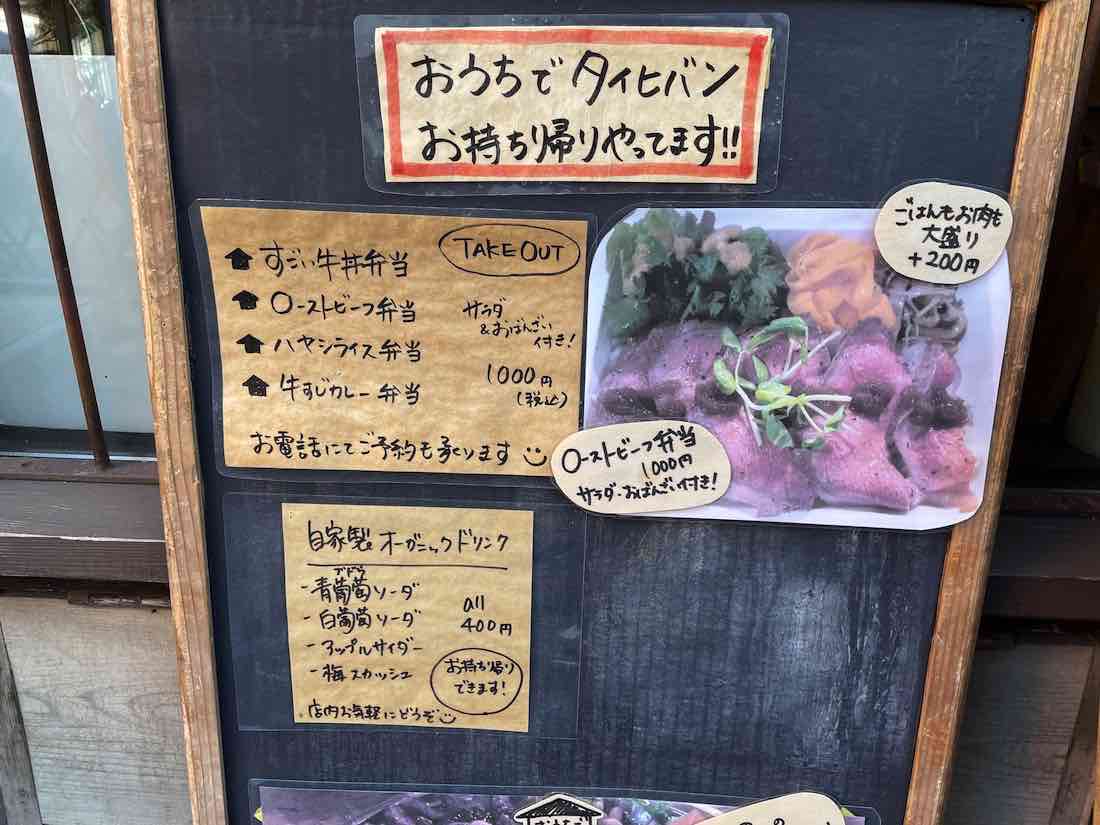 おうちでタイヒバン
お持ち帰りやってます!!
TAKE OUT
すごい牛丼弁当
ローストビーフ弁当
ハヤシライス弁当
牛すじカレー弁当
サラダ
&おばんざい
付き!
1000円
(税込)
お電話にてご予約も承ります
ごはんもお肉も
大盛り
+200円
ローストビーフ弁当
1000円
サラダ・おばんざい付き!
自家製オーガニックドリンク
ブドウ
-青葡萄ソーダ
-白葡萄ソーダ
-アップルサイダー
-梅スカッシュ
all
400円
お持ち帰り
できます!
店内お気軽にどうぞ